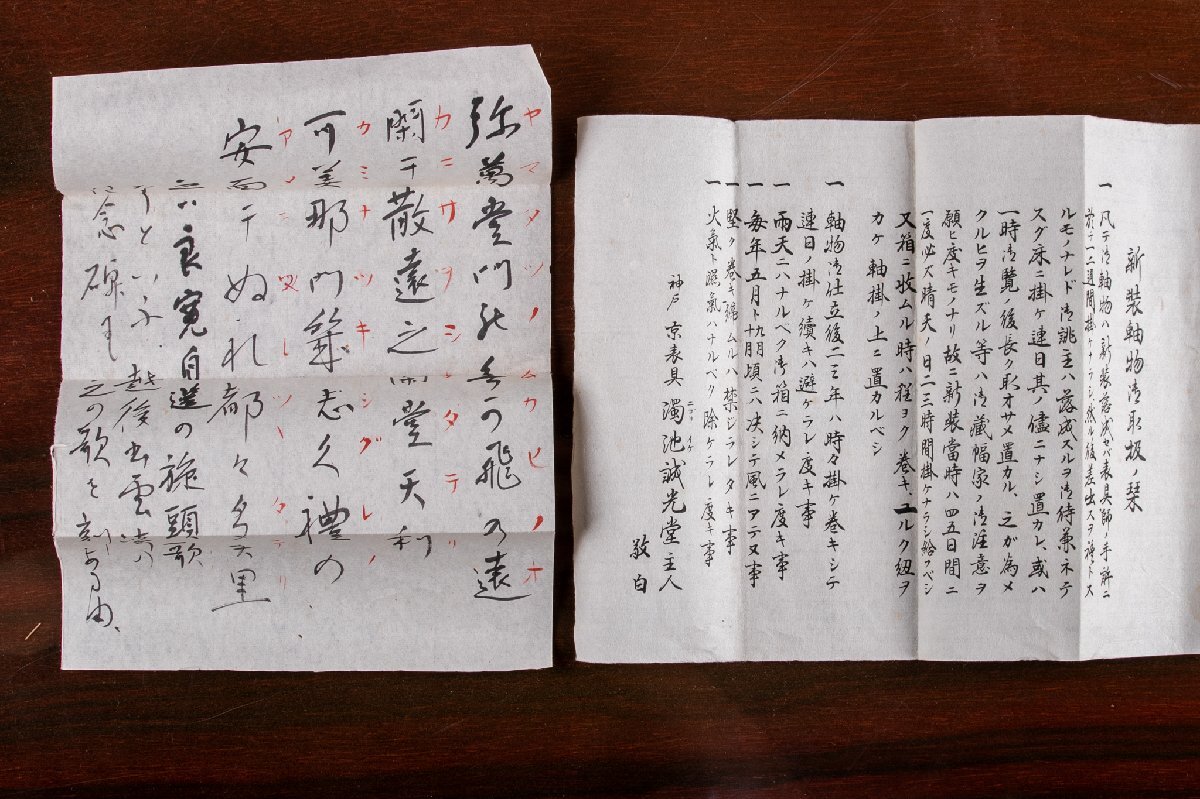 新装軸物御取扱ノ栞
一 凡テ御軸物ハ新装落成セバ表具師ノ手許ニ
ルモノナレド御誂主ハ落成スルヲ御待兼ネテ
スグ床ニ掛ケ連日其ノ儘ニナシ置カレ、或ハ
一時御覧ノ後長ク取オサメ置カル、之ガ為メ
クルヒヲ生ズル等ハ御藏幅家ノ御注意ヲ
願ヒ度キモノナリ故ニ新装當時ハ四五日間ニ
一度必ズ晴天ノ日二三時間掛ケナラシ給フベシ
又箱ニ收ムル時ハ程ヨク巻キ、ユルク紐ヲ
カケ軸掛ノ上ニ置カルベシ
一 軸物御仕立後二三年ハ時々掛ケ巻キシテ
連日ノ掛ケ續キハ避ケラレ度キ事
一 雨天ニハナルベク御箱ニ納メラレ度キ事
一 毎年五月ト九月頃ニハ決シテ風ニアテヌ事
一 堅ク巻キ縄ムルハ禁ジラレタキ事
一 火氣ト濕氣ハナルベク除ケラレ度キ事
神戸 京表具 濁池誠光堂主人
ニゴ イケ
敬白
ヤマタツノムカヒノオ
弥萬堂門能無可飛乃遠
カニサヲシカタテリ
閑干散遠之閑堂天利
カミナツキシグレノ
可美那門築志久禮の
安面干ぬ禮都々多天里
良寛自選の旋頭歌
といふ 越後出雲崎
念碑に之の歌を刻しある由、